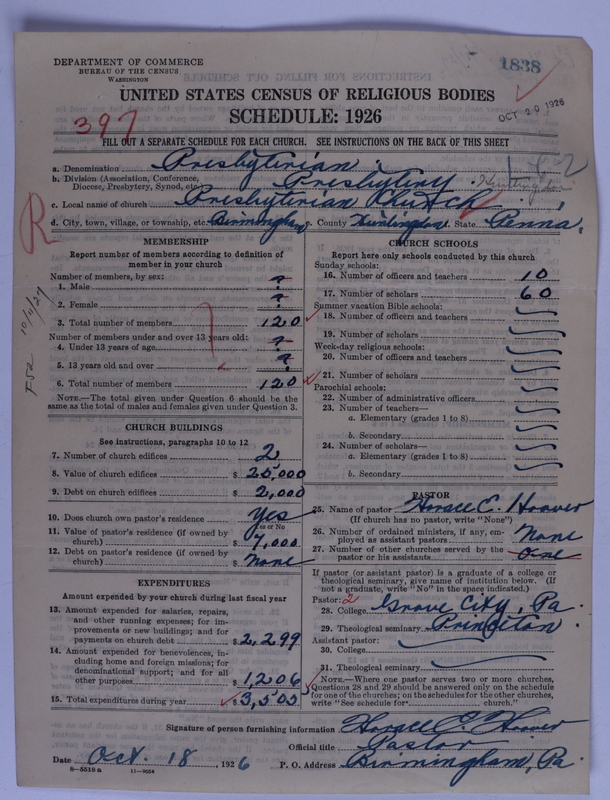 DEPARTMENT OF COMMERCE
BUREAU OF THE CENSUS
WASHINGTON
1838
UNITED STATES CENSUS OF RELIGIOUS BODIES
SCHEDULE: 1926
OCT 20 1926
397
FILL OUT A SEPARATE SCHEDULE FOR EACH CHURCH. SEE INSTRUCTIONS ON THE BACK OF THIS SHEET
a. Denomination Presbyterian
b. Division (Association, Conference, Diocese, Presbytery, Synod, etc.) Presbytery Huntingdon
c. Local name of church Presbyterian Church
d. City, town, village, or township, etc. Birmingham e. County Huntingdon f. State Penna.
R
T52 10/11/27
MEMBERSHIP
Report number of members according to definition of
member in your church
Number of members, by sex:
1. Male ?
2. Female ?
3. Total number of members 120
Number of members under and over 13 years old:
4. Under 13 years of age ?
5. 13 years old and over ?
6. Total number of members 120
NOTE.—The total given under Question 6 should be
same as the total of males and females given under Question 3.
CHURCH BUILDINGS
See instructions, paragraphs 10 to 12
7. Number of church edifices 2
8. Value of church edifices $ 25,000
9. Debt on church edifices $ 2,000
10. Does church own pastor's residence Yes
Yes or No
11. Value of pastor's residence (if owned by
church) $ 7,000
12. Debt on pastor's residence (if owned by
church) $ None
EXPENDITURES
Amount expended by your church during last fiscal year
13. Amount expended for salaries, repairs,
and other running expenses; for im-
provements or new buildings; and for
payments on church debt $ 2,299
14. Amount expended for benevolences, in-
cluding home and foreign missions; for
denominational support; and for all
other purposes $ 1,206
15. Total expenditures during year $ 3,505
CHURCH SCHOOLS
Report here only schools conducted by this church
Sunday schools:
16. Number of officers and teachers 10
17. Number of scholars 60
Summer vacation Bible schools:
18. Number of officers and teachers
19. Number of scholars
Week-day religious schools:
20. Number of officers and teachers
21. Number of scholars
Parochial schools:
22. Number of administrative officers
23. Number of teachers—
a. Elementary (grades 1 to 8)
b. Secondary
24. Number of scholars—
a. Elementary (grades 1 to 8)
b. Secondary
PASTOR
25. Name of pastor Horace E. Hoover
(If church has no pastor, write "None")
26. Number of ordained ministers, if any, em-
ployed as assistant pastors None
27. Number of other churches served by the
pastor or his assistants one
If pastor (or assistant pastor) is a graduate of a college or
theological seminary, give name of institution below. (If
not a graduate, write "No" in the space indicated.)
Pastor: 2
28. College Grove City, Pa.
29. Theological seminary Princeton
Assistant pastor:
30. College
31. Theological seminary
NOTE.—Where one pastor serves two or more churches,
Questions 28 and 29 should be answered only on the schedule
for one of the churches; on the schedules for the other churches,
write "See schedule for church."
Signature of person furnishing information Horace E. Hoover
Official title Pastor
Date Oct. 18, 1926 P. O. Address Birmingham, Pa.
8—5518 a 11—9034